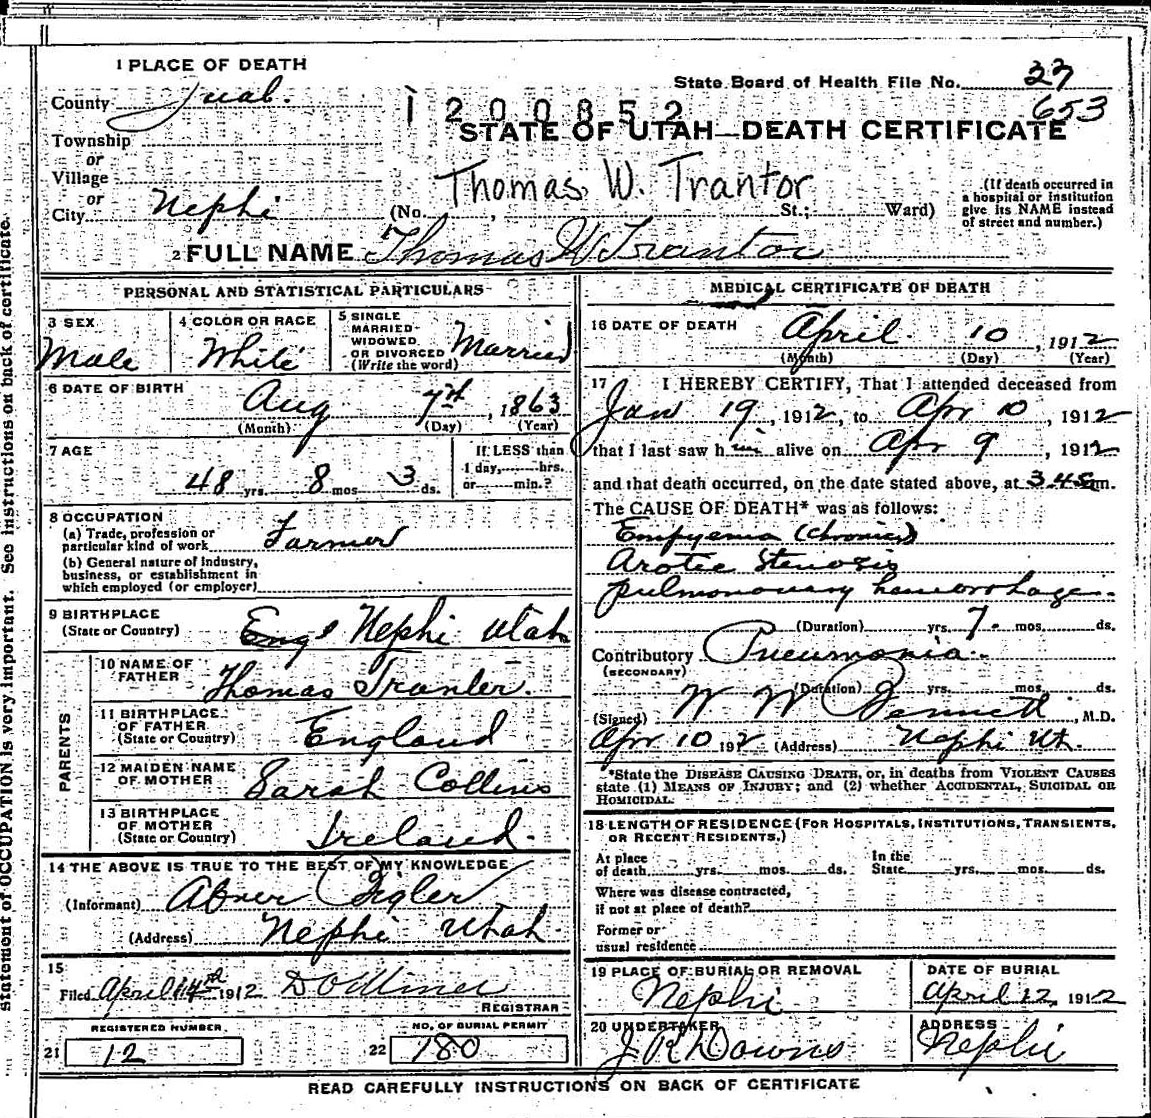 1 PLACE OF DEATH
County Juab.
State Board of Health File No. 37
653
1200852
STATE OF UTAH—DEATH CERTIFICATE
Township
or
Village
or
City Nephi
Thomas W. Trantor
(No. , St.; Ward)
(If death occurred in
a hospital or institution
give its NAME instead
of street and number.)
2 FULL NAME Thomas W Trantor
PERSONAL AND STATISTICAL PARTICULARS
3 SEX
Male
4 COLOR OR RACE
White
5 SINGLE
MARRIED
WIDOWED
OR DIVORCED
(Write the word)
Married
6 DATE OF BIRTH
Aug 7th, 1863
(Month) (Day) (Year)
7 AGE
48 yrs. 8 mos 3 ds.
If LESS than
1 day, hrs.
or min.?
8 OCCUPATION
(a) Trade, profession or
particular kind of work Farmer
(b) General nature of industry,
business, or establishment in
which employed (or employer)
9 BIRTHPLACE
(State or Country) Eng Nephi Utah
PARENTS
10 NAME OF
FATHER
Thomas Tranter.
11 BIRTHPLACE
OF FATHER
(State or Country)
England
12 MAIDEN NAME
OF MOTHER
Sarah Collins
13 BIRTHPLACE
OF MOTHER
(State or Country)
Ireland.
14 THE ABOVE IS TRUE TO THE BEST OF MY KNOWLEDGE
(Informant)
(Address) Nephi Utah
15
Filed April 14th 1912
REGISTRAR
REGISTERED NUMBER
21 12
NO. OF BURIAL PERMIT
22 180
MEDICAL CERTIFICATE OF DEATH
16 DATE OF DEATH
April 10, 1912
(Month) (Day) (Year)
17 I HEREBY CERTIFY, That I attended deceased from
Jan 19, 1912, to Apr 10, 1912
that I last saw him alive on Apr 9, 1912
and that death occurred, on the date stated above, at 345 m.
The CAUSE OF DEATH* was as follows:
Empyema (Chronic)
Arotic Stenosis
pulmonary hemorrhage.
(Duration) yrs. 7 mos. ds.
Contributory Pneumonia
(SECONDARY)
(Duration) yrs. mos. ds.
(Signed) W W Bennett, M.D.
Apr 10 1912 (Address) Nephi Ut.
*State the DISEASE CAUSING DEATH, or, in deaths from VIOLENT CAUSES
state (1) MEANS OF INJURY; and (2) whether ACCIDENTAL, SUICIDAL OR
HOMICIDAL.
18 LENGTH OF RESIDENCE (FOR HOSPITALS, INSTITUTIONS, TRANSIENTS,
OR RECENT RESIDENTS.)
At place
of death yrs. mos. ds.
In the
State yrs. mos. ds.
Where was disease contracted,
if not at place of death?
Former or
usual residence
19 PLACE OF BURIAL OR REMOVAL
Nephi
DATE OF BURIAL
April 12, 1912
20 UNDERTAKER
J R Downs
ADDRESS
Nephi
READ CAREFULLY INSTRUCTIONS ON BACK OF CERTIFICATE
statement of OCCUPATION is very important. See instructions on back of certificate.